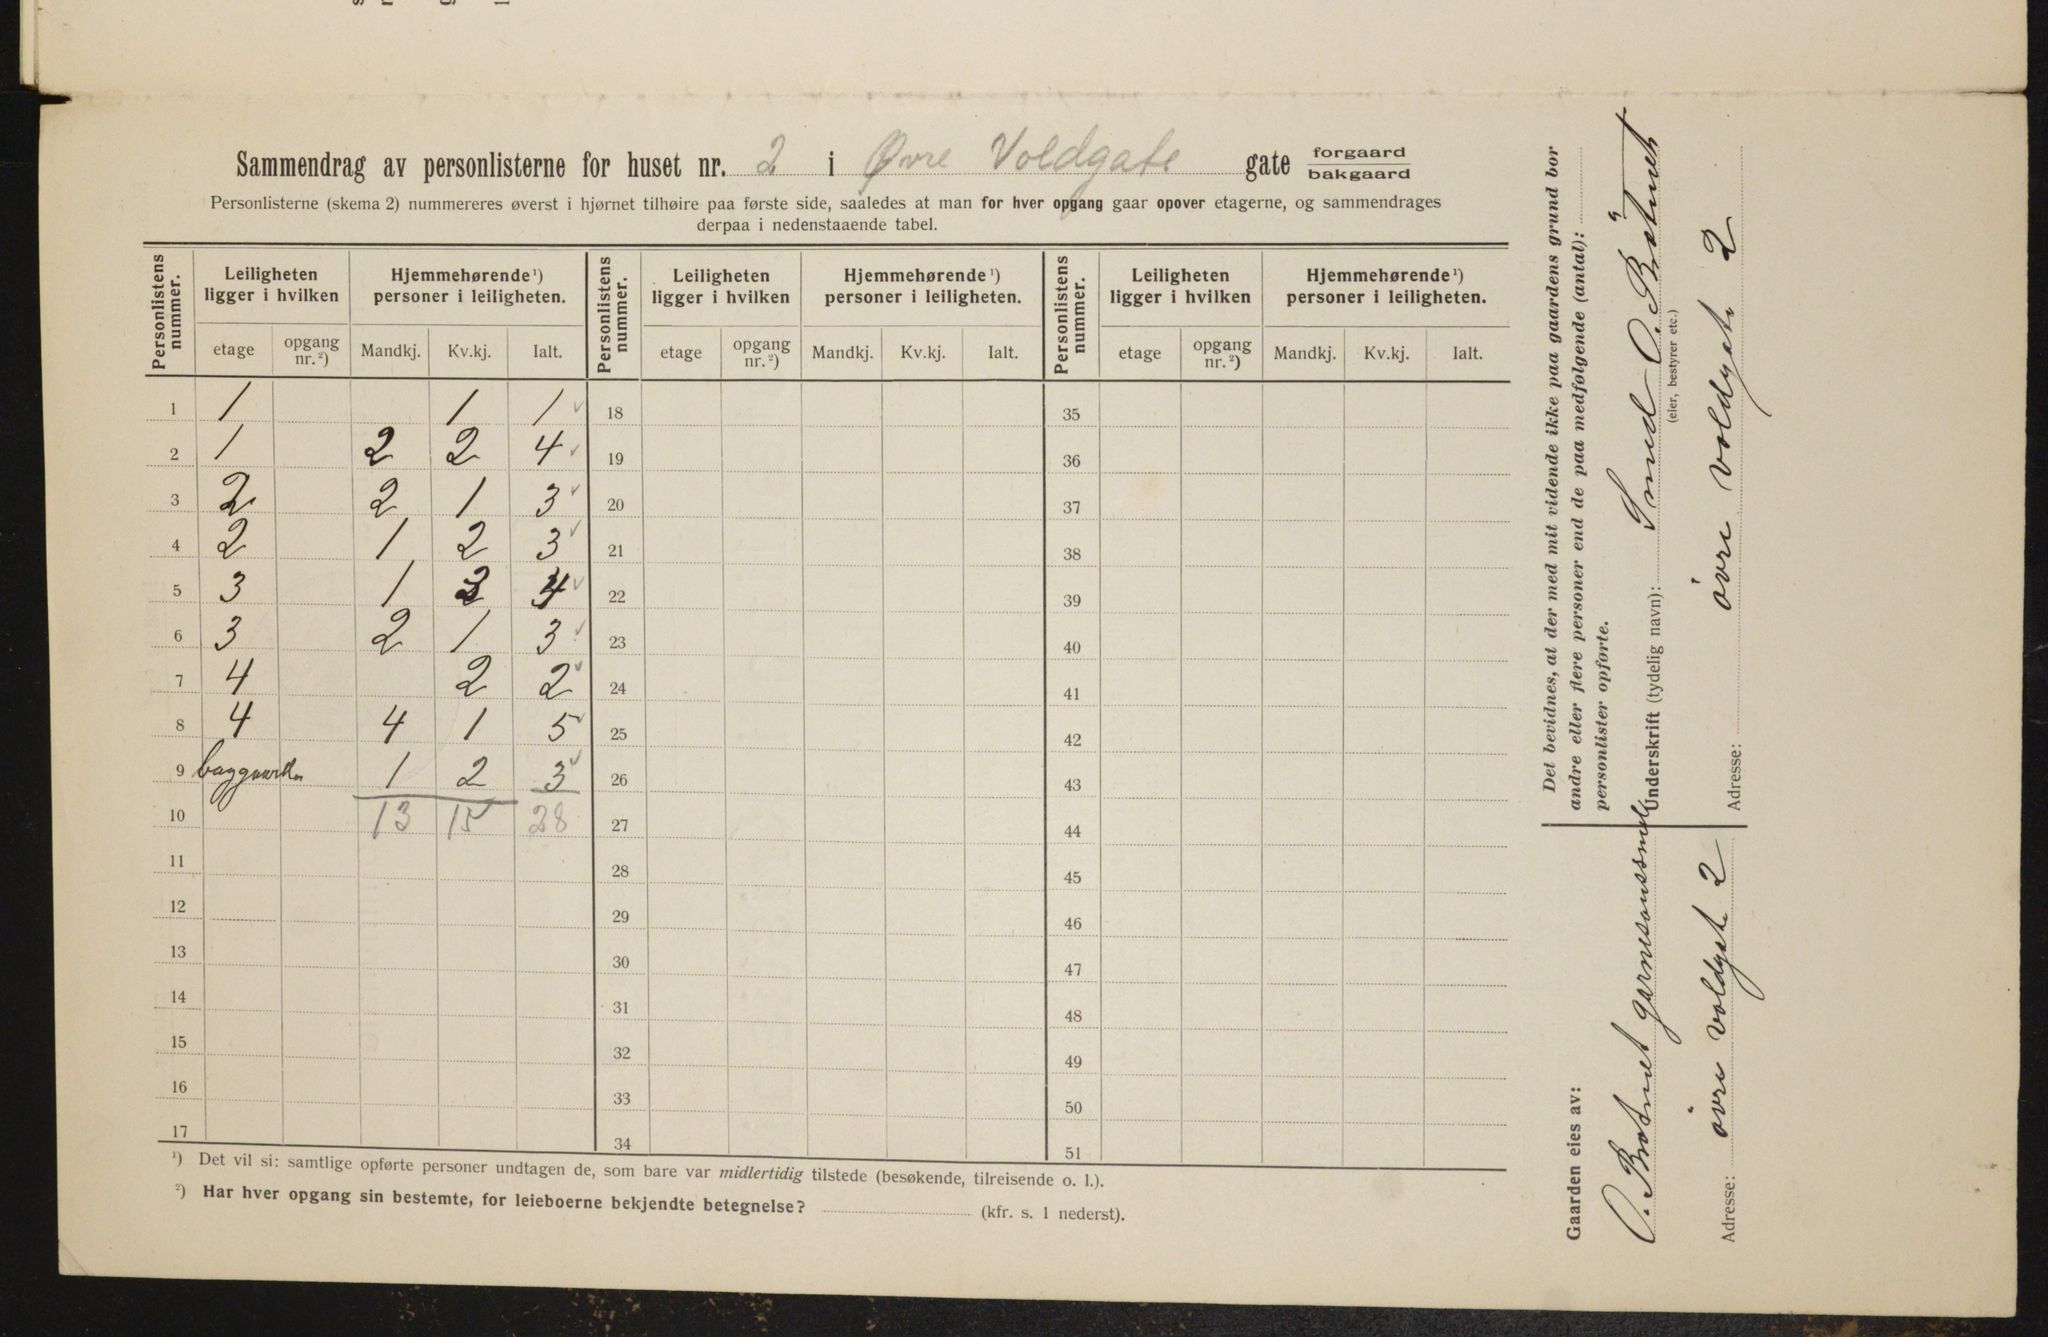 Sammendrag av personlisterne for huset nr. 2 i Øvre Voldgate gate forgaard bakgaard
Personlisterne (skema 2) nummereres øverst i hjørnet tilhøire paa første side, saaledes at man for hver opgang gaar opover etagerne, og sammendrages
derpaa i nedenstaaende tabel.
Personlistens nummer. Leiligheten ligger i hvilken Hjemmehørende ¹) personer i leiligheten. Personlistens nummer. Leiligheten ligger i hvilken Hjemmehørende ¹) personer i leiligheten. Personlistens nummer. Leiligheten ligger i hvilken Hjemmehørende ¹) personer i leiligheten.
etage opgang nr. ²) Mandkj. Kv.kj. Ialt. etage opgang nr. ²) Mandkj. Kv.kj. Ialt. etage opgang nr. ²) Mandkj. Kv.kj. Ialt.
1 1 1 1 18 35
2 1 2 2 4 19 36
3 2 2 1 3 20 37
4 2 1 2 3 21 38
5 3 1 3 4 22 39
6 3 2 1 3 23 40
7 4 2 2 24 41
8 4 4 1 5 25 42
9 1 2 3 26 43
10 13 15 28 27 44
11 28 45
12 29 46
13 30 47
14 31 48
15 32 49
16 33 50
17 34 51
¹) Det vil si: samtlige opførte personer undtagen de, som bare var midlertidig tilstede (besøkende, tilreisende o. l.).
²) Har hver opgang sin bestemte, for leieboerne bekjendte betegnelse? (kfr. s. 1 nederst).
Det bevidnes, at der med mit vidende ikke paa gaardens grund bor
andre eller flere personer end de paa medfølgende (antal):
personlister opførte.
Underskrift (tydelig navn): Smed O. Bråtnet
(eier, bestyrer etc.)
Adresse: övre voldgate 2
Gaarden eies av:
O. Bråtnet garnisonssmed
Adresse: övre voldgate 2